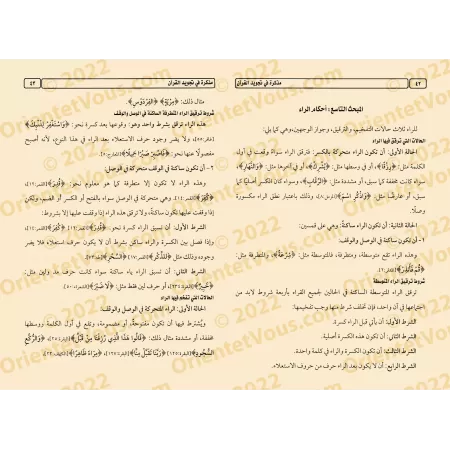 مذكرة في تجويد القرآن
٤٢
المبحث التاسع: أحكام الراء
للراء ثلاث حالات التفخيم، والترقيق، وجواز الوجهين، وهي كما يلي:
الحالات التي ترقق فيها الراء
الحالة الأولى: أن تكون الراء متحركة بالكسر: فترقق الراء سواء وقعت في أول
الكلمة مثل: ﴿رِزْقًا﴾، أو في وسطها مثل: ﴾، أو في آخرها مثل: ﴿وَالنَّهَارِ﴾،
سواء كانت مخففة كما سبق، أو مشددة مثل: ﴿الرِّقَابِ﴾، وسواء كان الكسر أصليا كما
سبق، أو عارضا مثل: ﴿وَاذْكُرِ اسْمَ﴾، وذلك باعتبار نطق الراء مكسورة
وصلًا.
الحالة الثانية: أن تكون الراء ساكنة: وهي على قسمين:
١- أن تكون ساكنة في الوصل والوقف:
وهذه الراء تقع متوسطة، ومتطرفة، فالمتوسطة مثل: ﴿شِرْعَةً﴾، والمتطرفة مثل:
﴿قُمْ فَأَنْذِرْ﴾
شروط ترقيق الراء المتوسطة
ترقق الراء المتوسطة الساكنة في الحالين لجميع القراء بأربعة شروط لابد من
اجتماعها في آن واحد، فإن تخلف شرط منها وجب تفخيمها:
الشرط الأول: أن يأتي قبل الراء كسرة.
الشرط الثاني: أن تكون هذه الكسرة أصلية.
الشرط الثالث: أن تكون الكسرة والراء في كلمة واحدة.
الشرط الرابع: أن لا يكون بعد الراء حرف من حروف الاستعلاء.
مذكرة في تجويد القرآن
٤٣
مثال ذلك: ﴿مِرْيَةٍ﴾ ﴿الْفِرْدَوْسِ﴾.
شروط ترقيق الراء المتطرفة الساكنة في الوصل والوقف
هذه الراء ترقق بشرط واحد وهو: وقوعها بعد كسرة نحو: ﴿وَاسْتَغْفِرْ لِذَنْبِكَ﴾
ولا يضر وجود حرف الاستعلاء بعد الراء في هذا النوع، لأنه أصبح
مفصولًا عنها نحو: ﴿فَاصْبِرْ صَبْرًا جَمِيلًا﴾
٢- أن تكون ساكنة في الوقف متحركة في الوصل:
وهذه الراء لا تكون إلا متطرفة كما هو معلوم نحو:
وهي متحركة في الوصل بالفتح أو الكسر أو الضم، ولكن
إذا وقفت عليها تكون ساكنة، ولا ترقق هذه الراء إذا وقفت عليها إلا بشروط:
الشرط الأول: أن تسبق الراء بكسر نحو:
وإذا فصل بين الكسرة والراء ساكن بشرط أن لا يكون حرف استعلاء، فلا يضر
وجوده وذلك مثل ﴿لِلذِّكْرِ﴾ ﴿السِّحْرَ﴾
الشرط الثاني: أن تسبق الراء بياء ساكنة سواء كانت حرف مد ولين مثل:
أو حرف لين فقط مثل: ﴿لَا ضَيْرَ﴾
الحالات التي تفخم فيها الراء
الحالة الأولى: أن تكون الراء متحركة في الوصل والوقف:
ويشترط فيها أن تكون مفتوحة، أو مضمومة، وتقع في أول الكلمة ووسطها
مخففة، أو مشددة مثال ذلك: ﴿قَالُوا هَذَا الَّذِي رُزِقْنَا مِنْ قَبْلُ﴾ ﴿وَالرُّكَّعِ
السُّجُودِ﴾ ﴿رَبَّنَا تَقَبَّلْ مِنَّا﴾ ﴿مِرَاءً ظَاهِرًا﴾
© 2022
OrientetVous.com